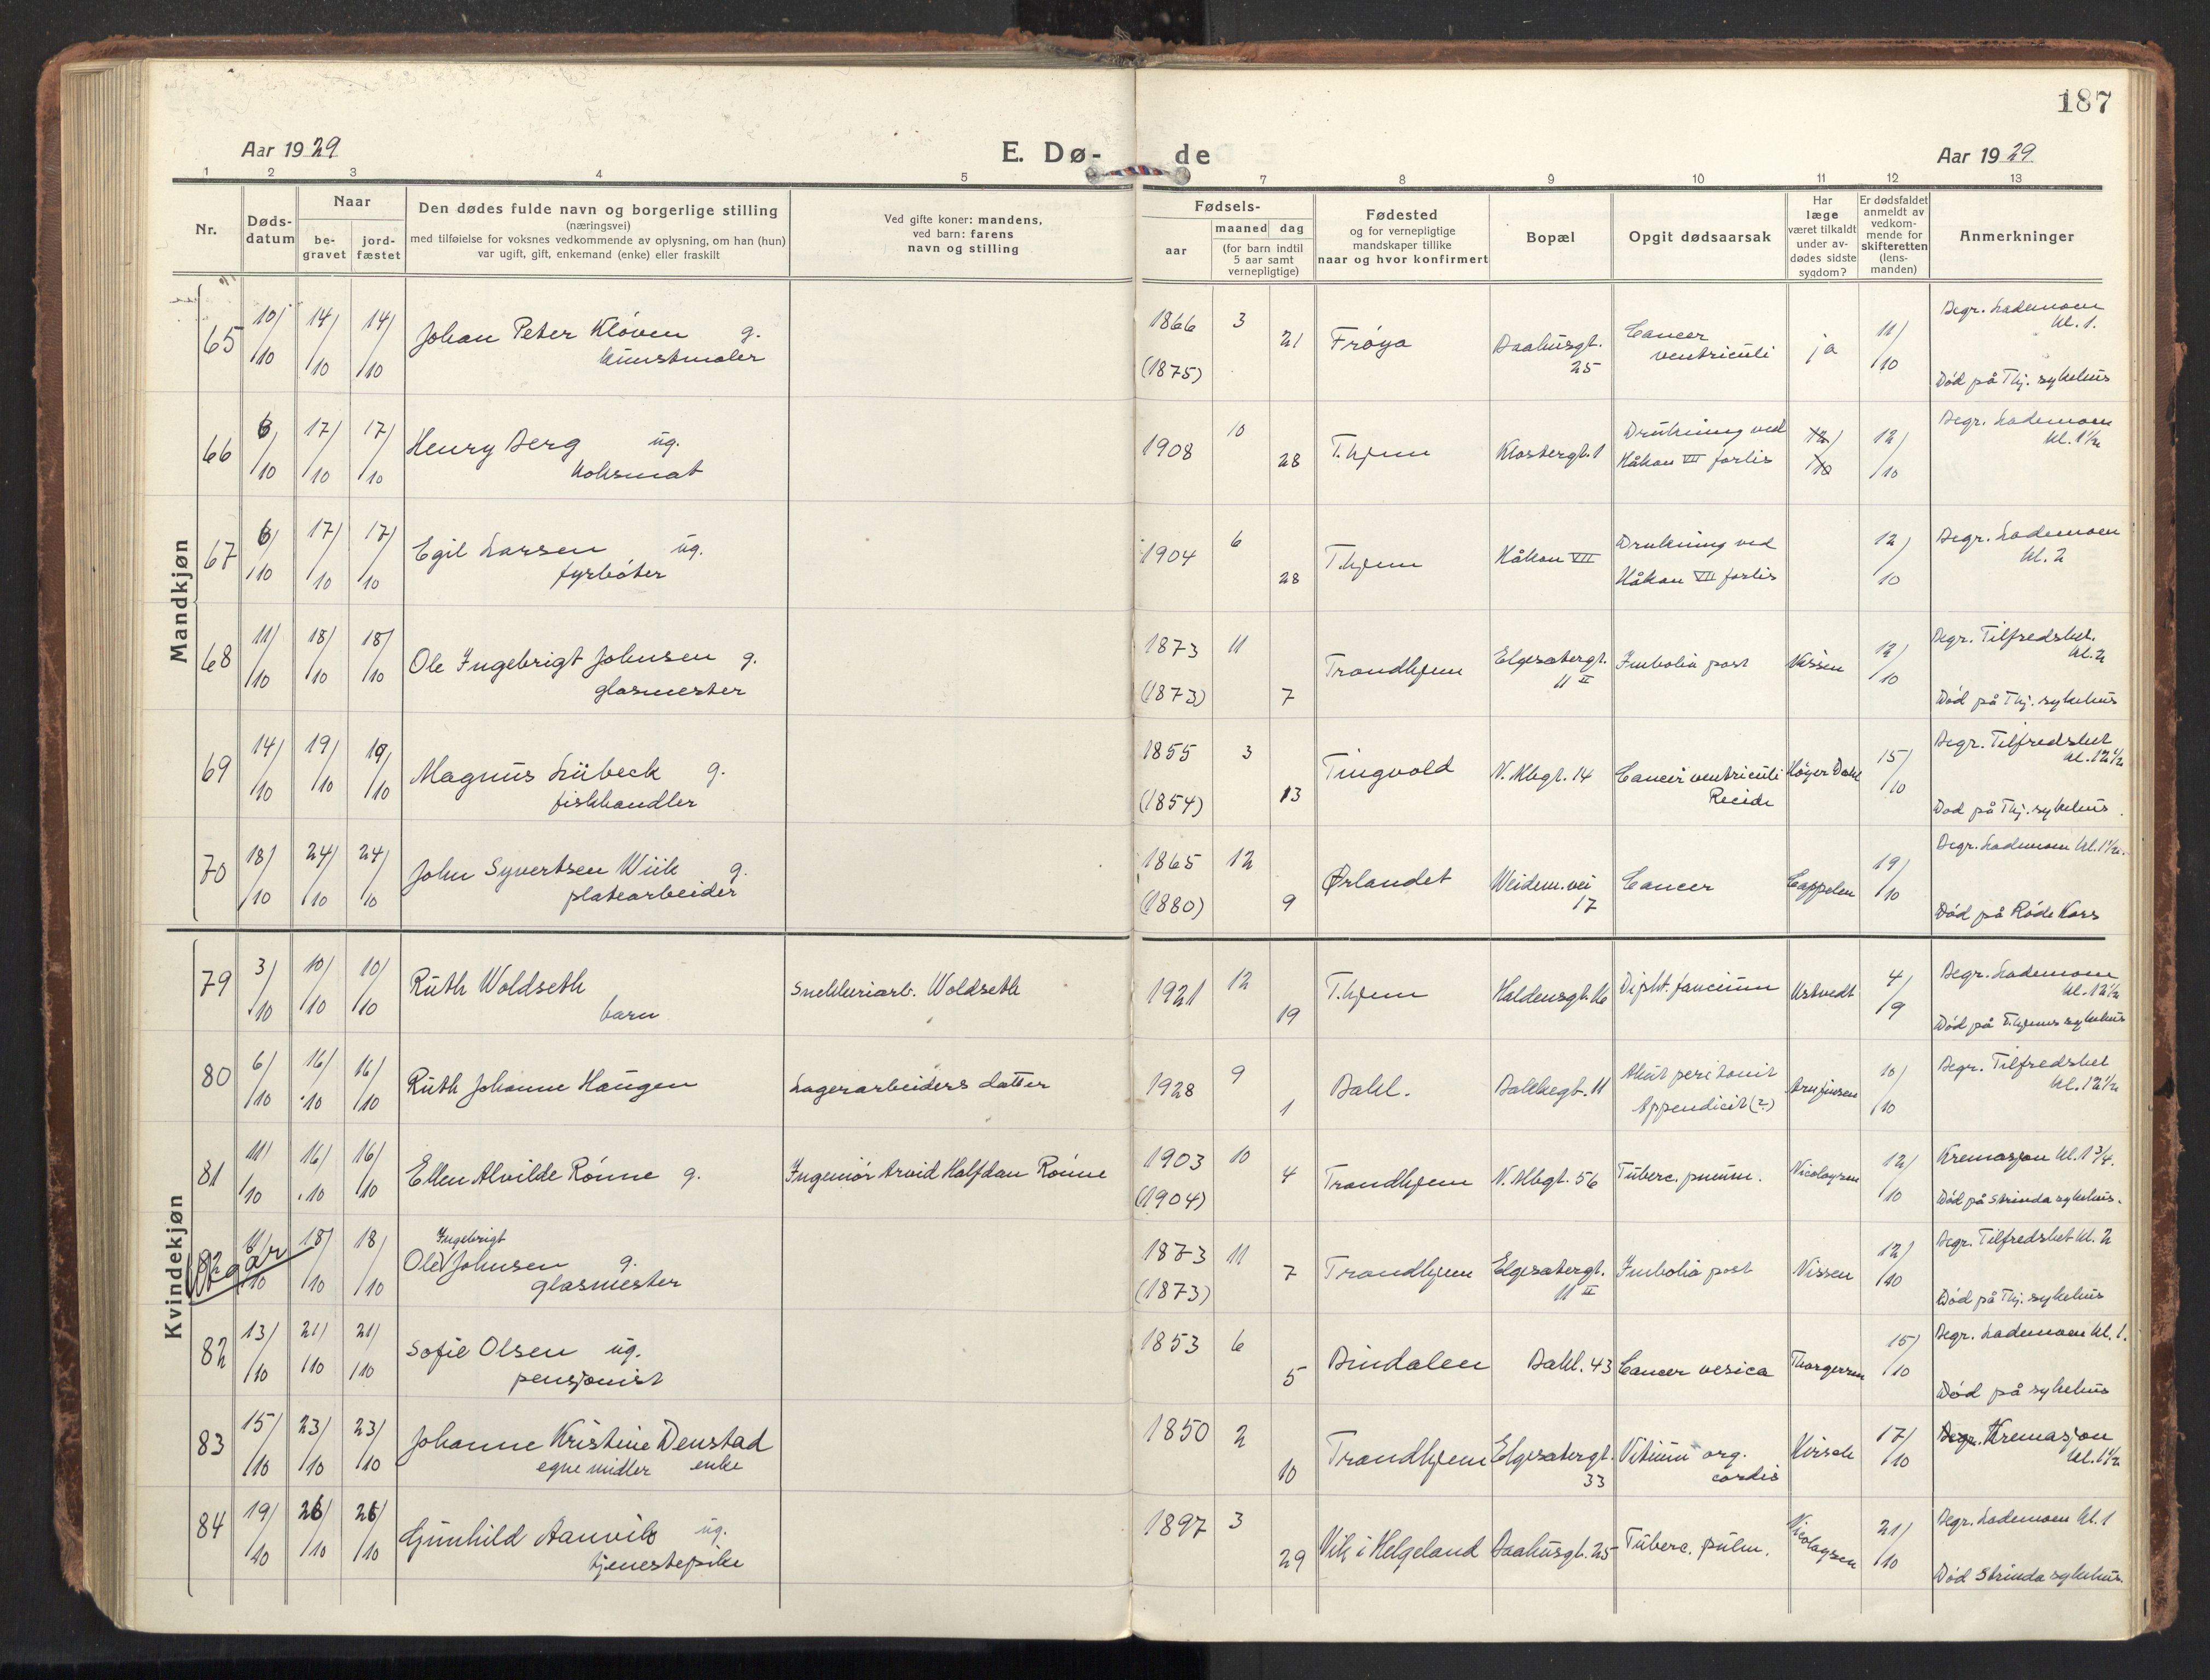 187
Aar 1929
E. Dø-
de
Aar 1929
1 2 3 4 5 7 8 9 10 11 12 13
Nr.
Døds-
datum
Naar
be-
gravet
jord-
fæstet
Den dødes fulde navn og borgerlige stilling
(næringsvei)
med tilføielse for voksnes vedkommende av oplysning, om han (hun)
var ugift, gift, enkemand (enke) eller fraskilt
Ved gifte koner: mandens,
ved barn: farens
navn og stilling
Fødsels-
aar
maaned dag
(for barn indtil
5 aar samt
vernepligtige)
Fødested
og for vernepligtige
mandskaper tillike
naar og hvor konfirmert
Bopæl
Opgit dødsaarsak
Har
læge
været tilkaldt
under av-
dødes sidste
sygdom?
Er dødsfaldet
anmeldt av
vedkom-
mende for
skifteretten
(lens-
manden)
Anmerkninger
Mandkjøn
65 10/10 14/10 14/10 Johan Peter Kløven g.
kunstmaler
1866 3 21 (1875) Frøya
Baahusgt.
25
Cancer
ventriculi
ja 11/10
Begr. Lademoen
kl. 1.
Død på Thj. sykehus
66 6/10 17/10 17/10 Henry Berg ug.
koksmat
1908 10 28 T.hjem Klostergt. 1
Drukning ved
Håkon VII forlis
12/10 12/10
Begr. Lademoen
kl. 1½
67 6/10 17/10 17/10 Egil Larsen ug.
fyrbøter
1904 6 28 T.hjem Håkon VII
Drukning ved
Håkon VII forlis
12/10
Begr. Lademoen
kl. 2
68 11/10 18/10 18/10 Ole Ingebrigt Johnsen g.
glasmester
1873 11 7 (1873) Trondhjem
Elgesætergt.
11 II
Imbolia post Nissen 12/10
Begr. Tilfredshet.
kl. 2
Død på Thj. sykehus
69 14/10 19/10 19/10 Magnus Lübeck g.
fiskhandler
1855 3 13 (1854) Tingvold N. Allegt. 14
Cancer ventriculi
Recidi
Høyer Dahl 15/10
Begr. Tilfredshet
kl. 12½
Død på Thj. sykehus.
70 18/10 24/10 24/10 John Syvertsen Wiik g.
platearbeider
1865 12 9 (1880) Ørlandet
Weidem.vei
17
Cancer Cappelen 19/10
Begr. Lademoen kl. 1½.
Død på Røde Kors
Kvindekjøn
79 3/10 10/10 10/10 Ruth Woldseth
barn
Snekkeriarb. Woldseth
1921 12 19 T.hjem Haldensgt. 16 Dipht. faucium Ustvedt 4/9
Begr. Lademoen
kl. 12½
Død på T.hjems sykehus
80 6/10 16/10 16/10 Ruth Johanne Haugen Lagerarbeiders datter
1928 9 1 Bakl. Bakkegt. 11
Akut peritonit
Appendicit (?)
Arnfinsen 10/10
Begr. Tilfredshet
kl. 12½
81 11/10 16/10 16/10 Ellen Alvilde Rønne g. Ingeniør Arvid Halfdan Rønne
1903 10 4 (1904) Trondhjem N. Allegt. 56 Tuberc. pneum. Nicolaysen 12/10
Kremasjon kl. 1 3/4.
Død på Strinda sykehus.
82 Utgår 11/10 18/10 18/10
Ingebrigt
Ole Johnsen g.
glasmester
1873 11 7 (1873) Trondhjem
Elgesætergt.
11 II
Imbolia post Nissen 12/10
Begr. Tilfredshet kl. 2
Død på Thj. sykehus
82 13/10 21/10 21/10 Sofie Olsen ug.
pensjonist
1853 6 5 Bindalen Bakl. 43 Cancer vesica Thorgersen 15/10
Begr. Lademoen kl. 1.
Død på sykehus
83 15/10 23/10 23/10 Johanne Kristine Denstad
egne midler enke
1850 2 10 Trondhjem
Elgesætergt.
33
Vitium org.
cordis
Kirsch 17/10
Begr. Kremasjon
kl. 1½
84 19/10 26/10 26/10 Gunhild Aanvik ug.
tjenestepike
1897 3 29 Vik i Helgeland Baahusgt. 25 Tuberc. pulm. Nicolaysen 21/10
Begr. Lademoen kl. 1
Død Strinda sykehus.